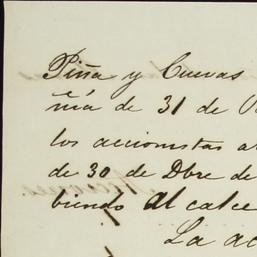 Piña y Cuevas
ñía de 31 de
los accionistas a
de 30 de Dbre de
biendo al calce
La ac